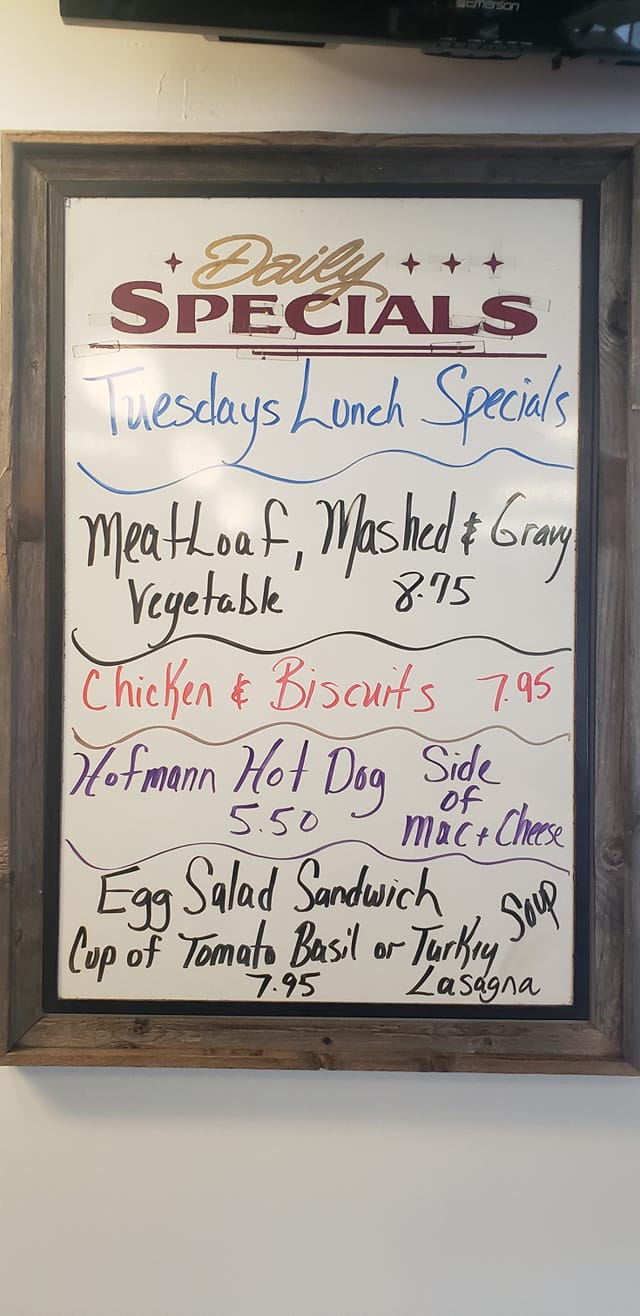 Emerson
Daily
SPECIALS
Tuesdays Lunch Specials
MeatLoaf, Mashed & Gravy
Vegetable 8.75
Chicken & Biscuits 7.95
Hofmann Hot Dog Side
of
5.50 Mac + Cheese
Egg Salad Sandwich
Soup
Cup of Tomato Basil or Turkey
7.95 Lasagna